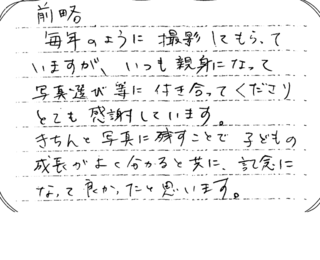 前略
毎年のように 撮影してもらって
いますが、いつも親身になって
写真選び等に付き合ってくださり
とても感謝しています。
きちんと写真に残すことで 子どもの
成長がよく分かると共に、記念に
なって良かったと思います。